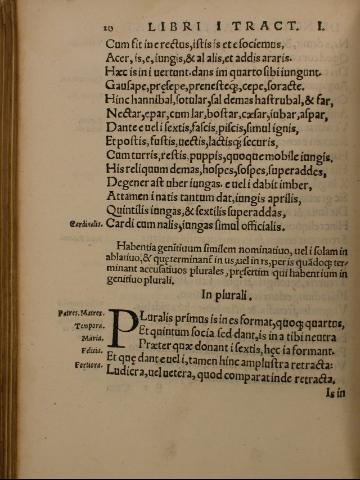 20 LIBRI I TRACT. I.
Cum sit in e rectus, istis is et e sociemus,
Acer, is, e, iungis, & al alis, et addis araris.
Hæc is in i uertunt. dans im quarto sibi iungunt.
Gausape, præsepe, prenesteq;, cepe, soracte.
Hinc hannibal, sotular, sal demas hastrubal, & far,
Nectar, epar, cum lar, bostar, cæsar, iubar, aspar,
Dant e uel i sextis, fascis, piscis, simul ignis,
Et postis, fustis, uectis, lactisq; securis,
Cum turris, restis. puppis, quoque mobile iungis.
His reliquum demas, hospes, sospes, superaddes,
Degener ast uber iungas. e uel i dabit imber,
Attamen i natis tantum dat, iungis aprilis,
Quintilis iungas, & sextilis superaddas,
Cardinalis. Cardi cum nalis, iungas simul officialis.
Habentia genitiuum similem nominatiuo, uel i solam in
ablatiuo, & que terminant in us, uel in rs, per is quādoq; ter-
minant accusatiuos plurales, presertim qui habent ium in
genitiuo plurali.
In plurali.
Patres. Matres. PLuralis primus is in es format, quoq; quartus,
Tempora. Et quintum socia sed dant, is in a tibi neutra
Maria. Præter quæ donant i sextis, hęc ia formant.
Felicia. Et quę dant e uel i, tamen hinc amplustra retracta:
Fortiora. Ludicra, uel uetera, quod comparat inde retracta,
Is in